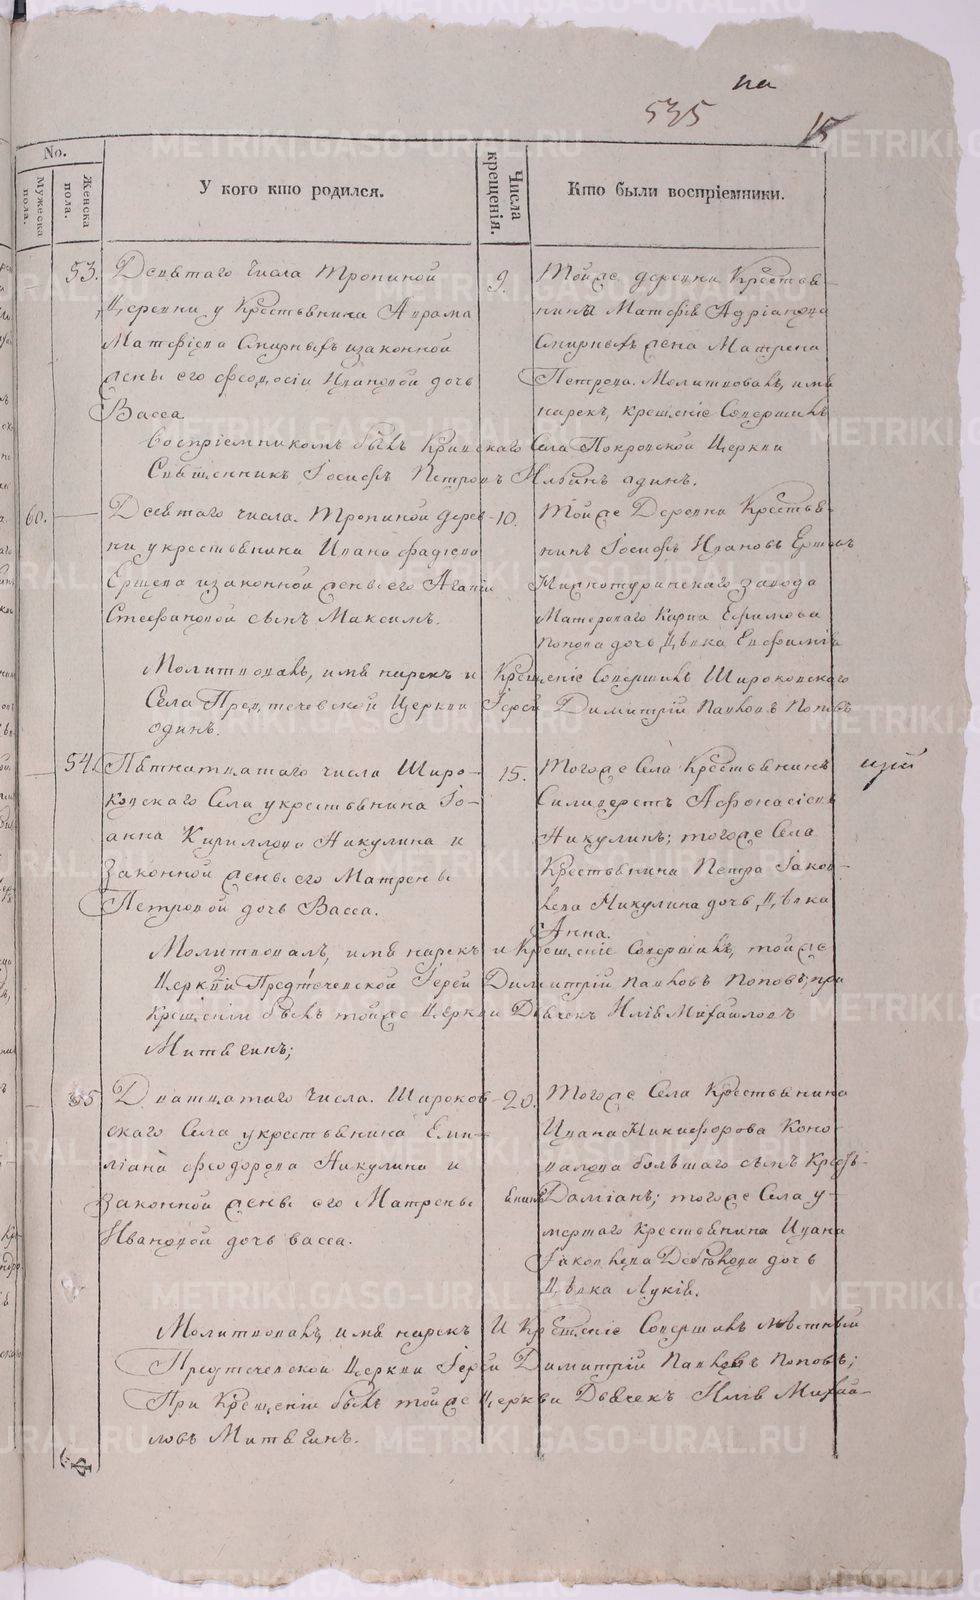 на
535
15
No.
Мужеска пола.
Женска пола.
У кого кто родился.
Числа крещенія.
Кто были воспріемники.
53. Девятаго числа Тропиной
деревни у Крестьянина Аврама
Матфіева Смирныхъ и законной
жены его Феодосіи Ивановой дочь
Васса
9.
Тойже деревни Крестья-
нина Матфія Адріанова
Смирныхъ жена Матрена
Петрова. Молитвовалъ, имя
нарекъ, крещеніе Совершилъ
воспріемникомъ былъ Кривскаго Села Покровской Церкви
Священникъ Іосифъ Петровъ Ильинъ одинъ.
60. Девятаго числа. Тропиной дерев-
ни у крестьянина Ивана Фадіева
Ершева и законной жены его Агапіи
Стефановой сынъ Максимъ.
10.
Тойже Деревни Крестья-
нинъ Іосифъ Ивановъ Ершевъ
Нижнотуринскаго завода
Мастероваго Карпа Ефимова
Попова дочь дѣвка Евфимія
Молитвовалъ, имя нарекъ и Крещеніе Совершилъ Широковскаго
Села Предтечевской Церкви Іерей Димитрій Павловъ Поповъ
одинъ.
54. Пятнатцатаго числа Широ-
ковскаго Села у крестьянина Іо-
анна Кириллова Никулина и
Законной жены его Матрены
Петровой дочь Васса.
15.
Тогоже Села Крестьянинъ
Силиверстъ Афонасіевъ
Никулинъ; тогоже Села
Крестьянина Петра Іаков-
лева Никулина дочь дѣвка
Анна.
щій
Молитвовалъ, имя нарекъ и Крещеніе Совершилъ, тойже
Церкви Предтечевской Іерей Димитрій Павловъ Поповъ; при
крещеніи былъ тойже Церкви Дьячекъ Илія Михайловъ
Митягинъ;
55 Дватцатаго числа. Широков-
скаго Села у крестьянина Еми-
ліана Феодорова Никулина и
законной жены его Матрены
Ивановой дочь васса.
20.
Тогоже Села Крестьянина
Ивана Никифорова Коно-
валова большаго сынъ Кресть-
янинъ Даміанъ; тогоже Села у-
мершаго крестьянина Ивана
Іаковлева дочь
дѣвка Лукія.
Молитвовалъ, имя нарекъ И Крещеніе Совершилъ мѣстный
Предтечевской Церкви Іерей Димитрій Павловъ Поповъ;
При Крещеніи былъ тойже Церкви Дьячекъ Илія Михай-
ловъ Митягинъ.
METRIKI.GASO-URAL.RU